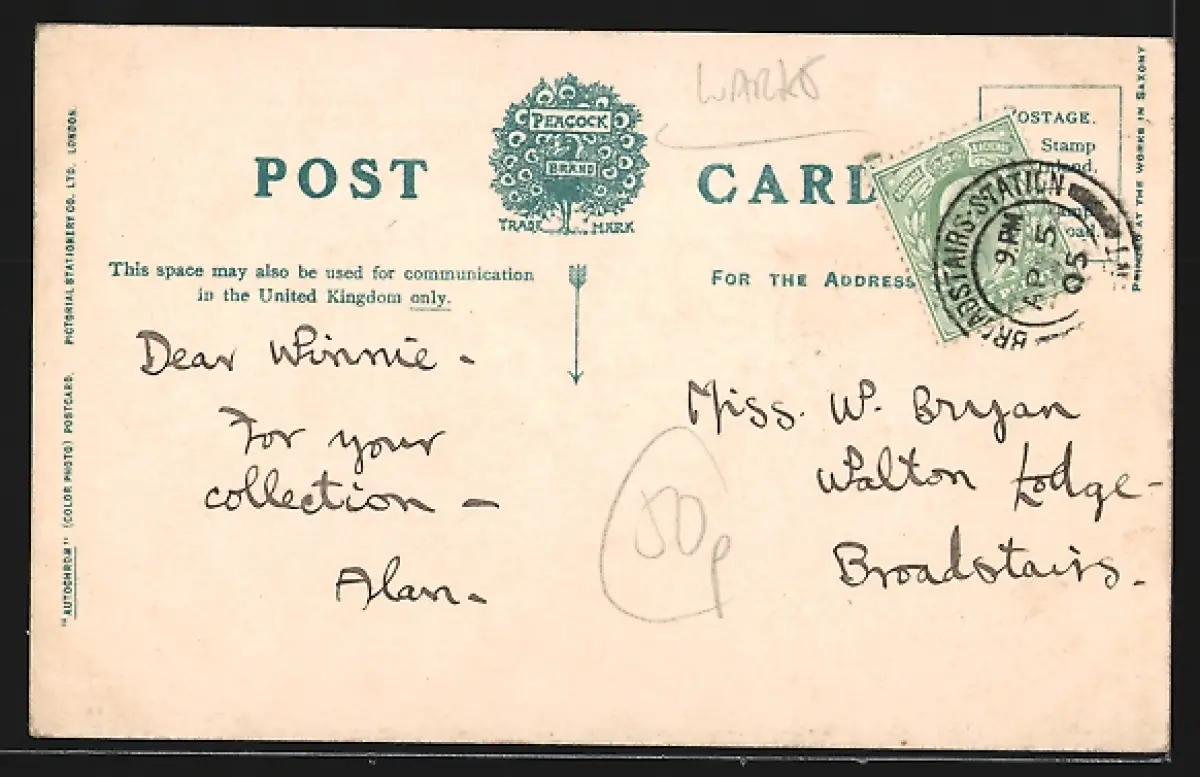 WARKS
POST CARD
PEACOCK
BRAND
TRADE MARK
This space may also be used for communication
in the United Kingdom only.
FOR THE ADDRESS
POSTAGE.
Stamp
BROADSTAIRS·STATION
9 PM
AP 5
05
Dear Winnie -
For your
collection -
Alan -
Miss. W. Bryan
Walton Lodge -
Broadstairs -
50p
"AUTOCHROM" (COLOR PHOTO) POSTCARD. PICTORIAL STATIONERY CO. LTD. LONDON.
PRINTED AT THE WORKS IN SAXONY